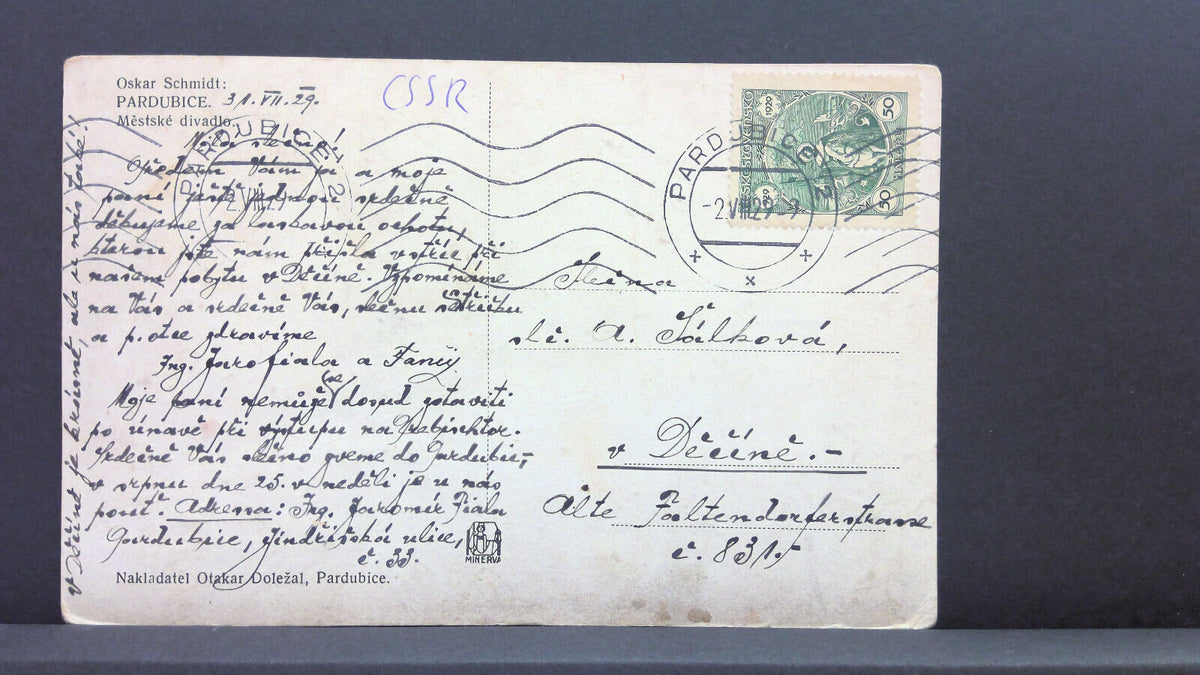 Oskar Schmidt:
PARDUBICE. 31.VII.29.
Městské divadlo.
CSSR
Milá slečno!
Předem Vám já a moje
paní ještě jednou srdečně
děkujeme za laskavou ochotu,
kterou jste nám přišla vstříc při
našem pobytu v Děčíně. Vzpomínáme
na Vás a srdečně Vás, slečnu
a p. otce zdravíme
Ing. Jar. Fiala a Fanÿ
Moje paní nemůže se dosud zotaviti
po únavě při výstupu na Prebischtor.
Srdečně Vás slečno zveme do Pardubic,
v srpnu dne 25. v neděli je u nás
pouť. Adresa: Ing. Jaromír Fiala
Pardubice, Jindřišská ulice,
č. 33.
v Děčíně je krásně, ale u nás také!
MINERVA
Nakladatel Otakar Doležal, Pardubice.
PARDUBICE 2
2.VIII.29
PARDUBICE 2
-2.VIII.29-7
ČESKOSLOVENSKO
929 1929
50 50
Slečna
sl. A. Šálková,
v Děčíně.-
Alte Faltendorferstrasse
č. 831.-